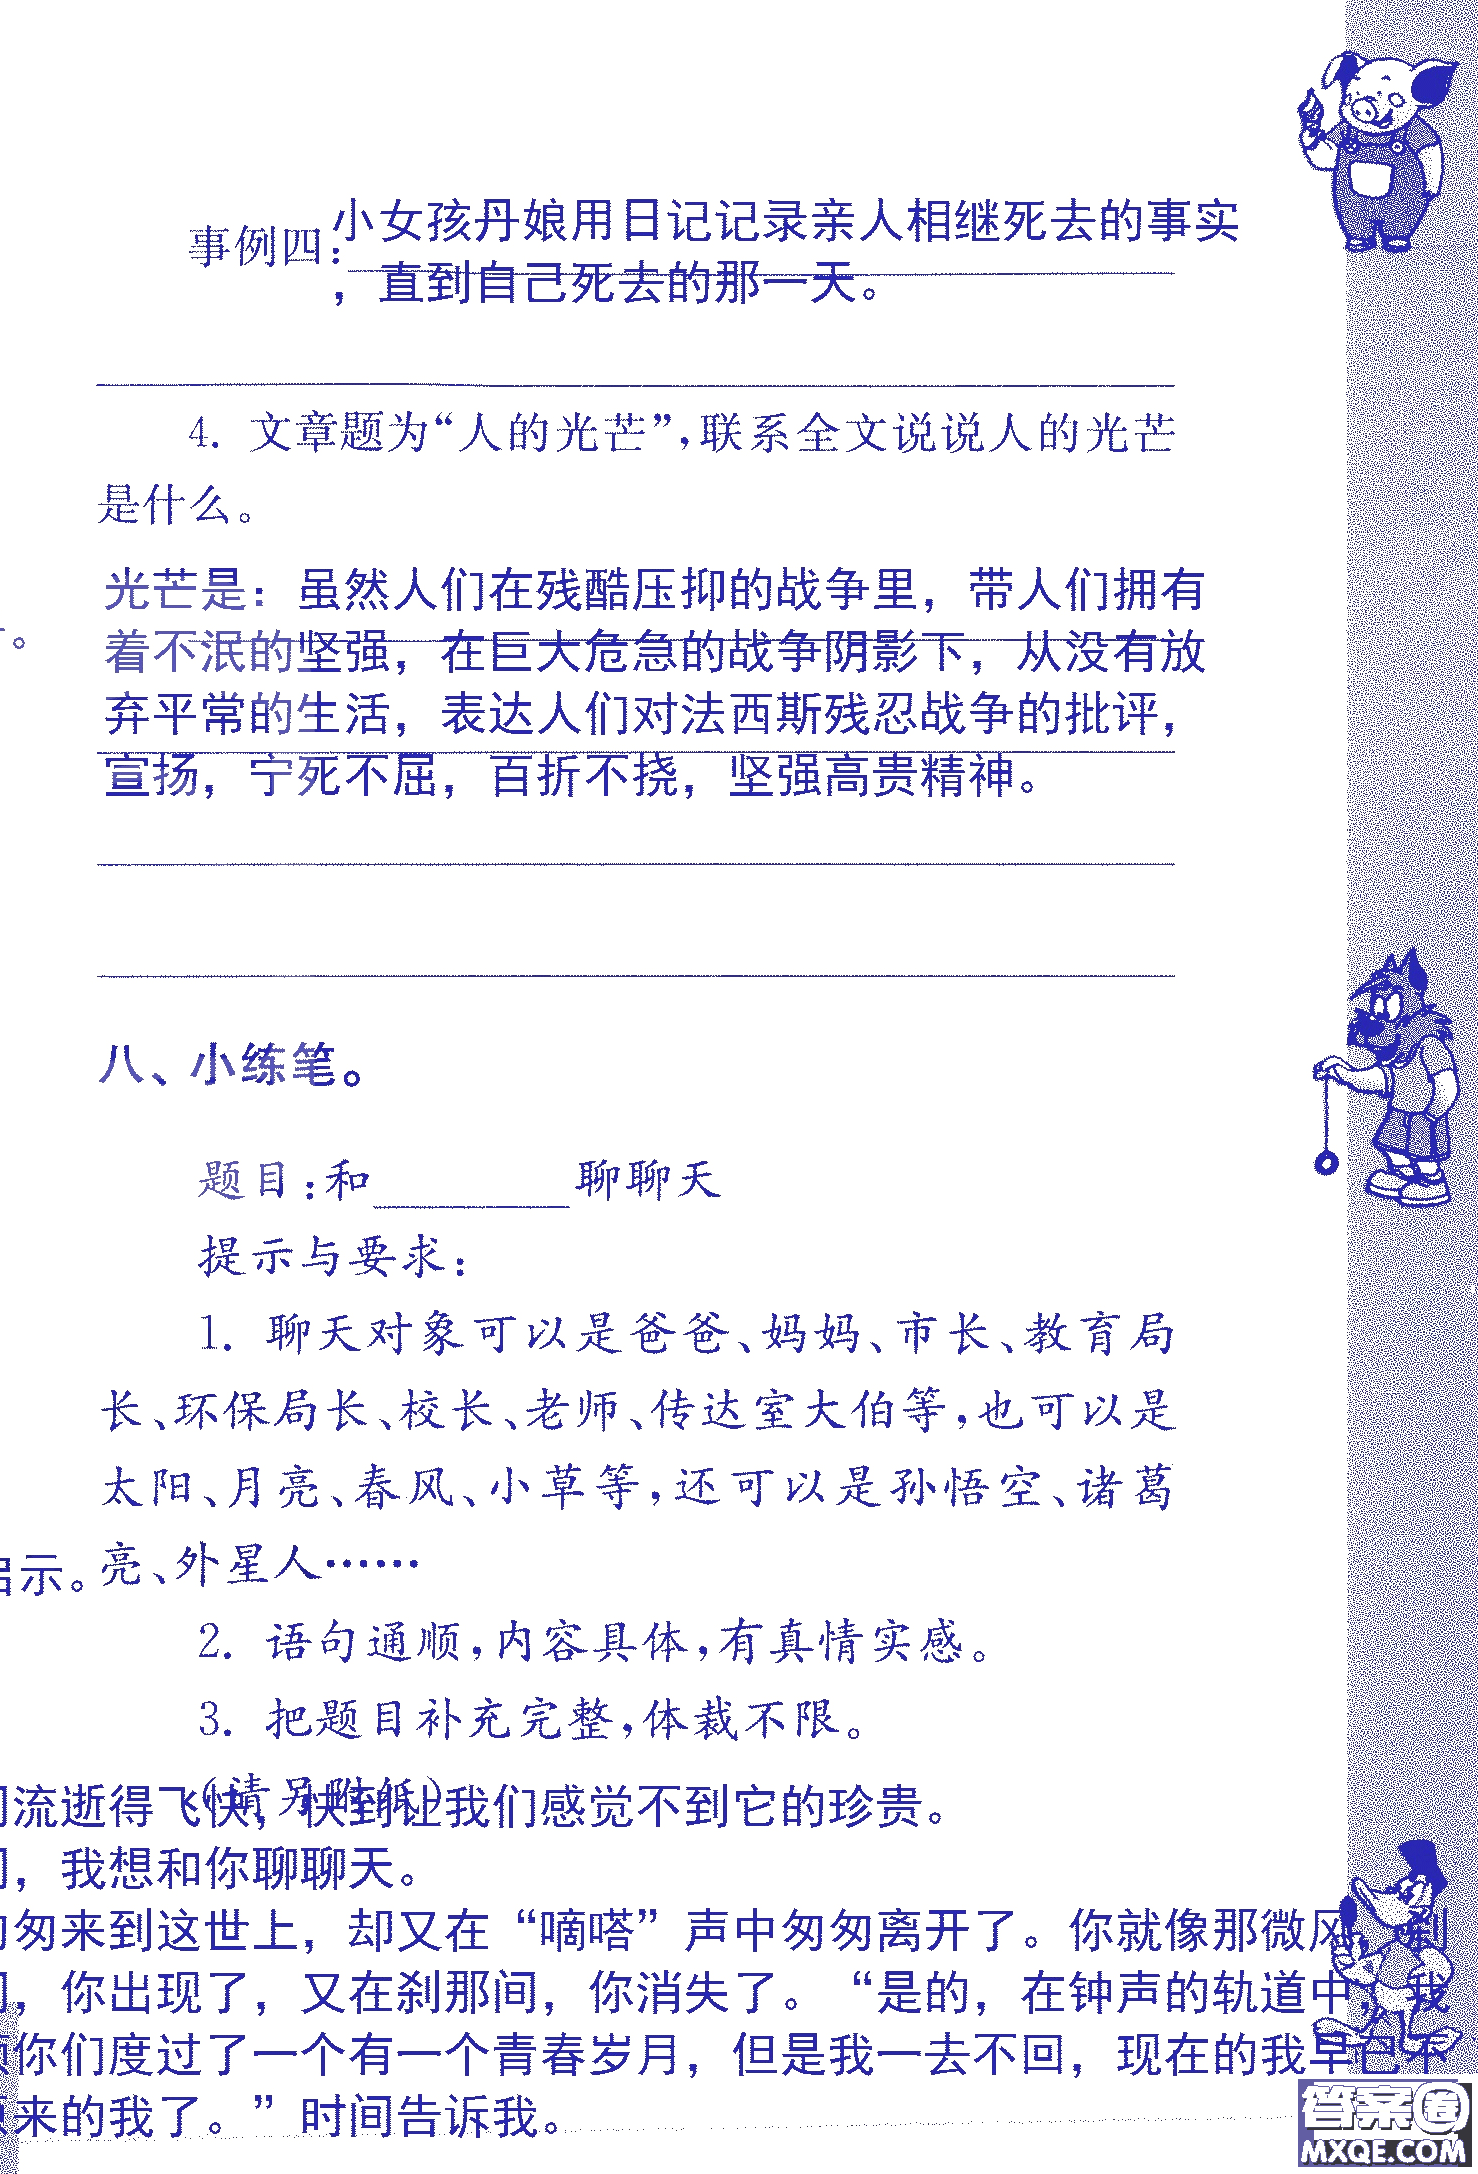 小女孩丹娘用日记记录亲人相继死去的事实
事例四:
，直到自己死去的那一天。
4. 文章题为“人的光芒”,联系全文说说人的光芒
是什么。
光芒是：虽然人们在残酷压抑的战争里，带人们拥有
。
着不泯的坚强，在巨大危急的战争阴影下，从没有放
弃平常的生活，表达人们对法西斯残忍战争的批评，
宣扬，宁死不屈，百折不挠，坚强高贵精神。
八、小练笔。
题目:和________聊聊天
提示与要求:
1. 聊天对象可以是爸爸、妈妈、市长、教育局
长、环保局长、校长、老师、传达室大伯等,也可以是
太阳、月亮、春风、小草等,还可以是孙悟空、诸葛
示。
亮、外星人……
2. 语句通顺,内容具体,有真情实感。
3. 把题目补充完整,体裁不限。
(请另附纸)
流逝得飞快，快到让我们感觉不到它的珍贵。
，我想和你聊聊天。
匆来到这世上，却又在“嘀嗒”声中匆匆离开了。你就像那微风，刹
，你出现了，又在刹那间，你消失了。“是的，在钟声的轨道中，我
你们度过了一个有一个青春岁月，但是我一去不回，现在的我早已不
来的我了。”时间告诉我。
答案圈
MXQE.COM